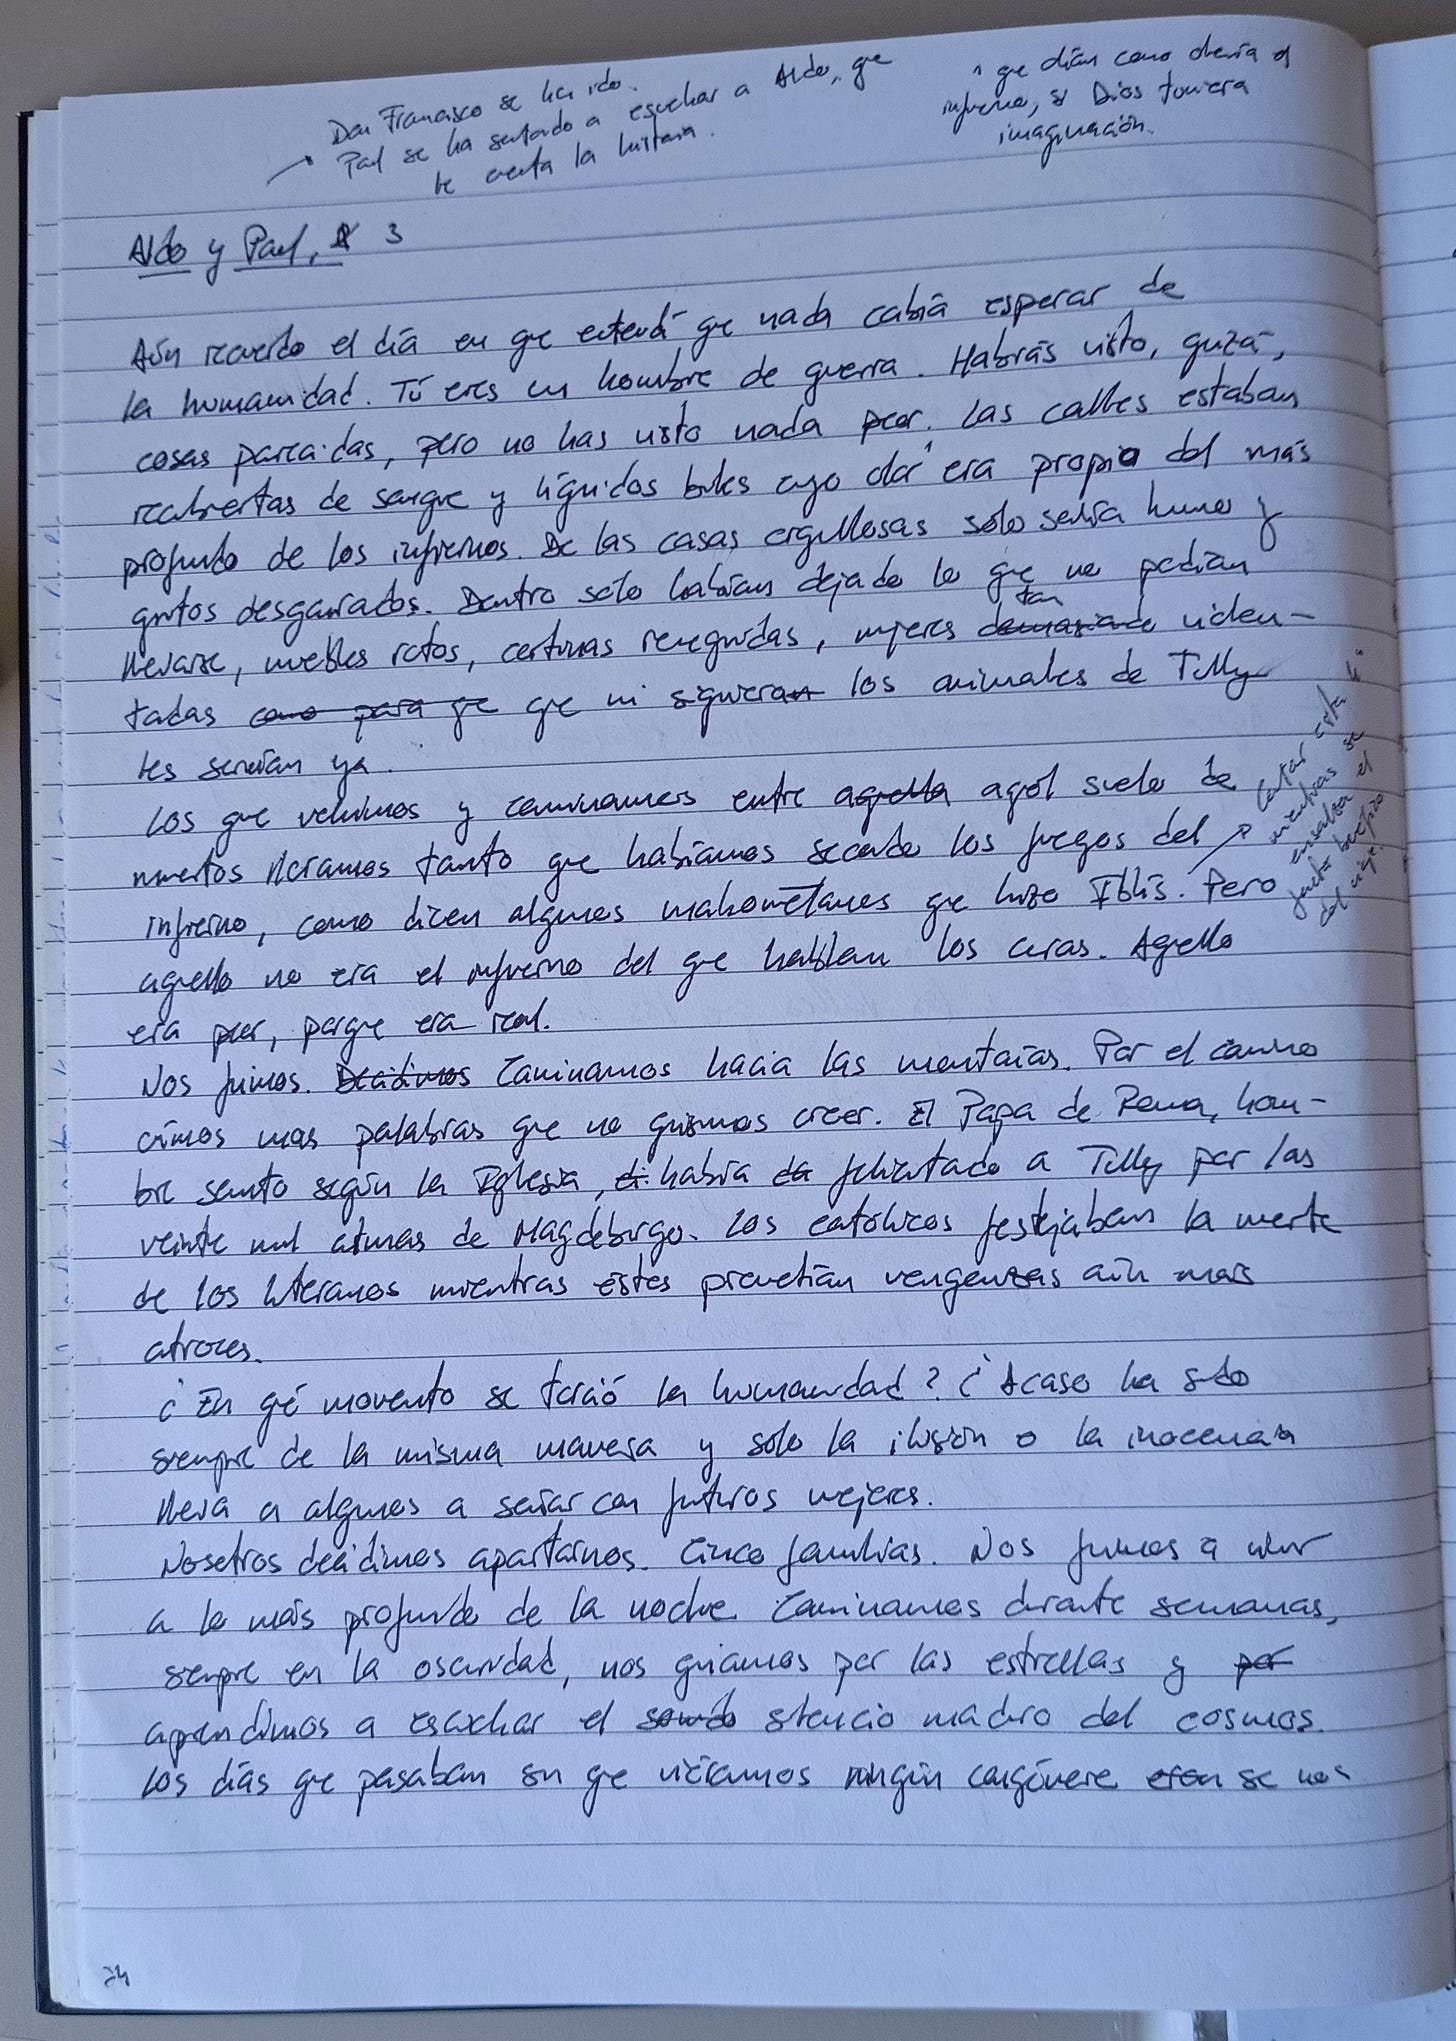 Don Francisco se ha ido.
Paul se ha sentado a escuchar a Aldo, que
le cuenta la historia.
que dirían como olería el
infierno, si Dios tuviera
imaginación.
Aldo y Paul, 3
Aún recuerdo el día en que entendí que nada cabía esperar de
la humanidad. Tú eres un hombre de guerra. Habrás visto, quizá,
cosas parecidas, pero no has visto nada peor. Las calles estaban
recubiertas de sangre y líquidos cuyo olor era propio del más
profundo de los infiernos. De las casas orgullosas sólo salía humo y
gritos desgarrados. Dentro sólo habían dejado lo que no podían
llevarse, muebles rotos, cortinas renegridas, mujeres demasiado tan violen-
tadas como para que que ni siquieran los animales de Tilly
les servían ya.
Los que volvimos y caminamos entre aquella aquel suelo de
muertos lloramos tanto que habíamos secado los fuegos del
infierno, como dicen algunos mahometanos que hizo Iblís. Pero
aquello no era el infierno del que hablan los curas. Aquello
era peor, porque era real.
Nos fuimos. Decidimos Caminamos hacia las montañas. Por el camino
oímos unas palabras que no quisimos creer. El Papa de Roma, hom-
bre santo según la Iglesia, había felicitado a Tilly por las
veinte mil almas de Magdeburgo. Los católicos festejaban la muerte
de los luteranos mientras éstos prometían venganzas aún más
atroces.
¿En qué momento se torció la humanidad? ¿Acaso ha sido
siempre de la misma manera y solo la ilusión o la inocencia
lleva a algunos a soñar con futuros mejores.
Nosotros decidimos apartarnos. Cinco familias. Nos fuimos a vivir
a lo más profundo de la noche. Caminamos durante semanas,
siempre en la oscuridad, nos guiamos por las estrellas y por
aprendimos a escuchar el sonido silencio macabro del cosmos.
Los días que pasaban sin que viéramos ningún congénere eran se nos
contar esta h.ª
mientras se
ensalza el
24